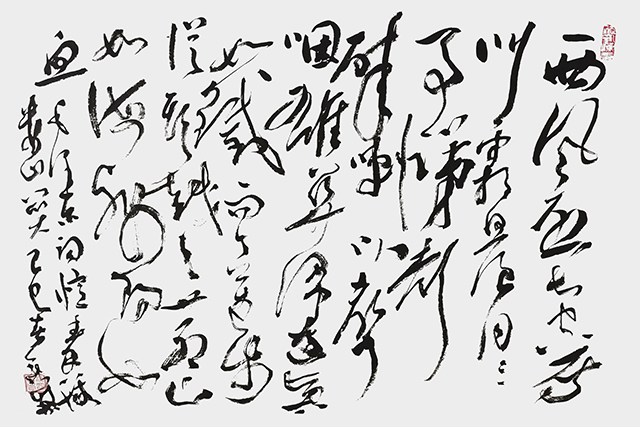 西风烈长空雁
叫霜晨月〻〻
马蹄声
碎喇叭声
咽雄关漫道真
如铁而今迈步
从头越〻〻苍山
如海残阳如
血
毛泽东词忆秦娥
娄山关乙巳春